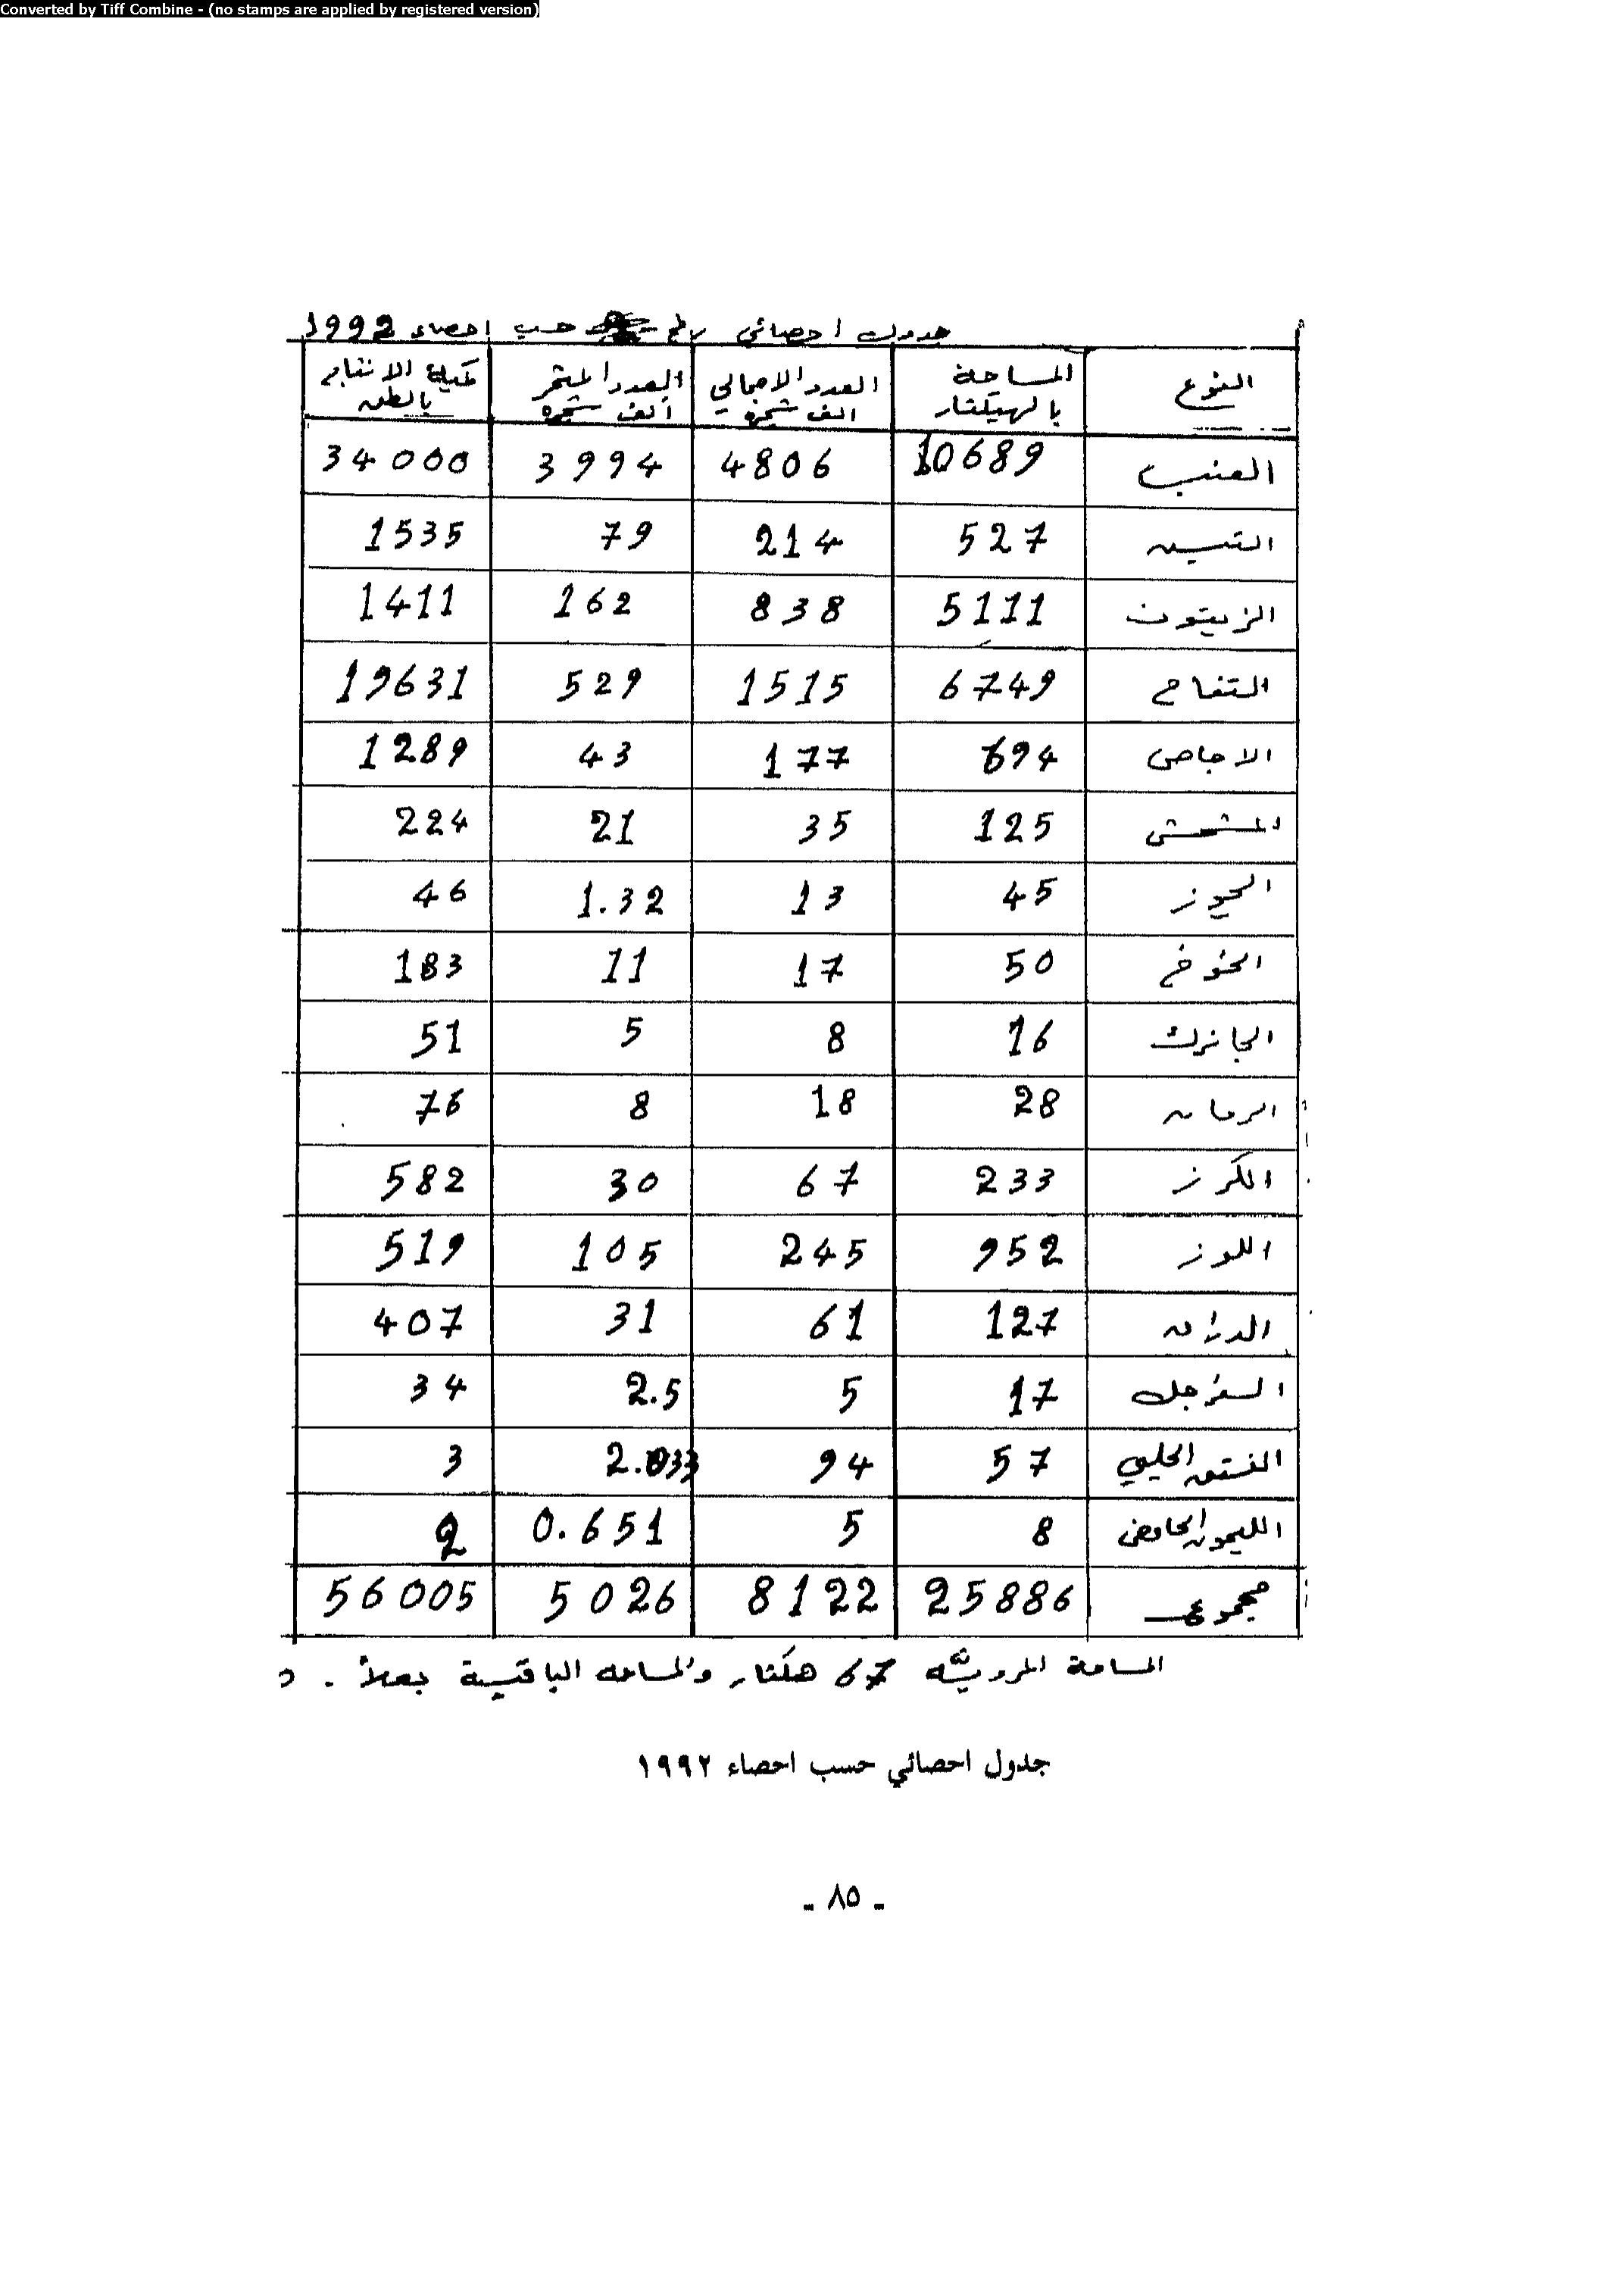 Converted by Tiff Combine - (no stamps are applied by registered version)
جدول احصائي رقم حسب احصاء 1992
النوع المساحة بالهيكتار العدد الاجمالي الف شجرة العدد المثمر الف شجرة كمية الانتاج بالطن
العنب 10689 4806 3994 34000
التين 527 214 79 1535
الزيتون 5111 838 162 1411
التفاح 6749 1515 529 19631
الاجاص 694 177 43 1289
المشمش 125 35 21 224
الجوز 45 13 1.32 46
الخوخ 50 17 11 183
الجانرك 16 8 5 51
الرمان 28 18 8 76
الكرز 233 67 30 582
اللوز 952 245 105 519
الدراق 127 61 31 407
السفرجل 17 5 2.5 34
الفستق الحلبي 57 94 2.033 3
الليمون الحامض 8 5 0.651 2
مجموع 25886 8122 5026 56005
المساحة المروية 67 هكتار والمساحه الباقية بعلاً .
جدول احصائي حسب احصاء ١٩٩٢
- ٨٥ -